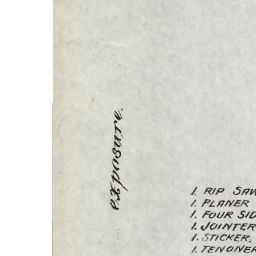 exposure.
1. RIP SAW
1. PLANER
1. FOUR SID
1. JOINTER
1. STICKER.
1. TENONER